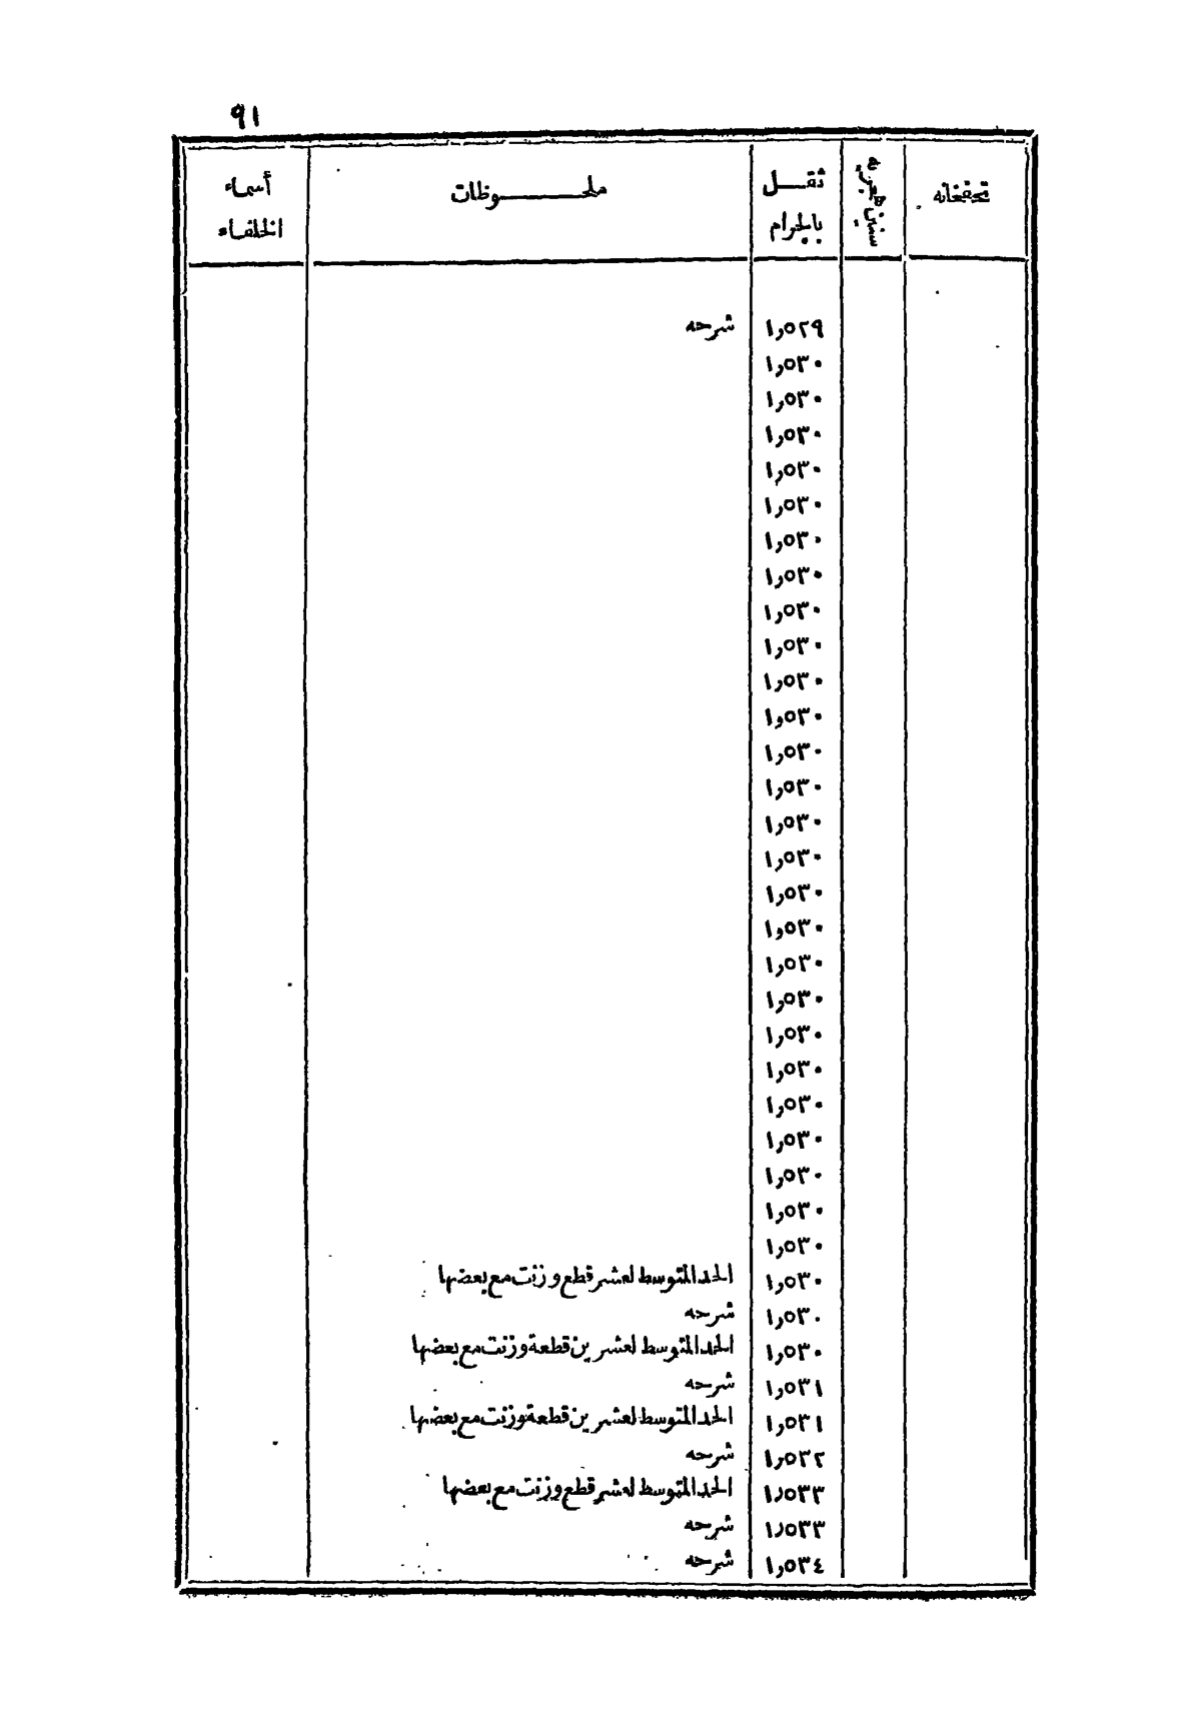 ٩١
تحفخانه
سنين هجريه
ثقـــل بالجرام
ملحـــــــوظات
أسماء الخلفاء
١,٥٢٩ شرحه
١,٥٣٠
١,٥٣٠
١,٥٣٠
١,٥٣٠
١,٥٣٠
١,٥٣٠
١,٥٣٠
١,٥٣٠
١,٥٣٠
١,٥٣٠
١,٥٣٠
١,٥٣٠
١,٥٣٠
١,٥٣٠
١,٥٣٠
١,٥٣٠
١,٥٣٠
١,٥٣٠
١,٥٣٠
١,٥٣٠
١,٥٣٠
١,٥٣٠
١,٥٣٠
١,٥٣٠
١,٥٣٠
١,٥٣٠
١,٥٣٠ الحد المتوسط لعشر قطع وزنت مع بعضها
١,٥٣٠ شرحه
١,٥٣٠ الحد المتوسط لعشرين قطعة وزنت مع بعضها
١,٥٣١ شرحه
١,٥٣١ الحد المتوسط لعشرين قطعة وزنت مع بعضها
١,٥٣٢ شرحه
١,٥٣٣ الحد المتوسط لعشر قطع وزنت مع بعضها
١,٥٣٣ شرحه
١,٥٣٤ شرحه